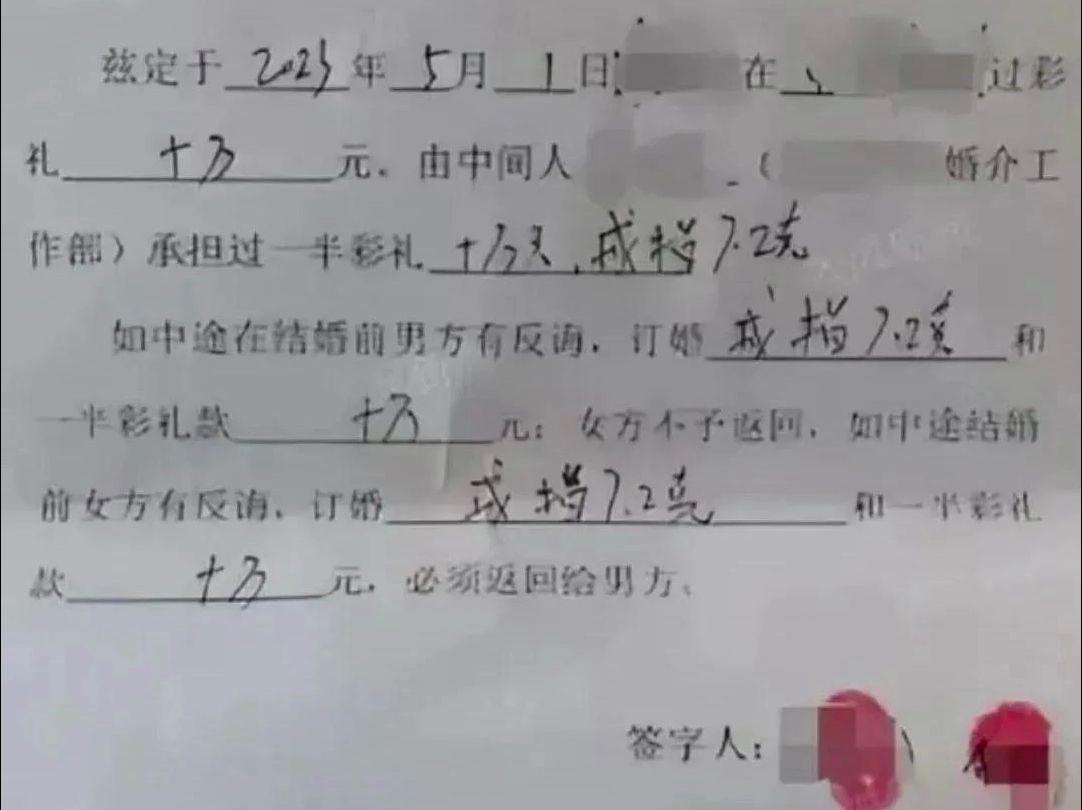 兹定于2023年5月1日 在 过彩
礼十万元。由中间人 ( 婚介工
作部)承担过一半彩礼十万元,戒指7.2克
如中途在结婚前男方有反悔,订婚戒指7.2克和
一半彩礼款十万元;女方不予返回,如中途结婚
前女方有反悔,订婚戒指7.2克和一半彩礼
款十万元,必须返回给男方、
签字人: